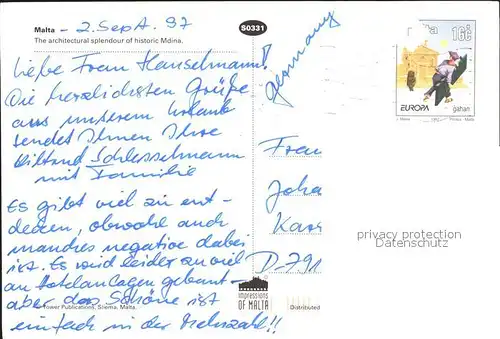 Malta – 2. Sept. 97
The architectural splendour of historic Mdina.
S0331
Liebe Frau Hanselmann!
Die herzlichsten Grüße
aus unserem Urlaub
sendet Ihnen Ihre
Schlesselmann
mit Familie
Es gibt viel zu ent-
decken, obwohl auch
manches negative dabei
ist. Es wird leider zu viel
an Hotelanlagen gebaut –
aber das Schöne ist
einfach in der Mehrzahl!!
Tower Publications, Sliema, Malta.
IMPRESSIONS
OF MALTA
Distributed
Germany
Frau
Joha
D 791
Malta
16c
EUROPA
gahan
privacy protection
Datenschutz